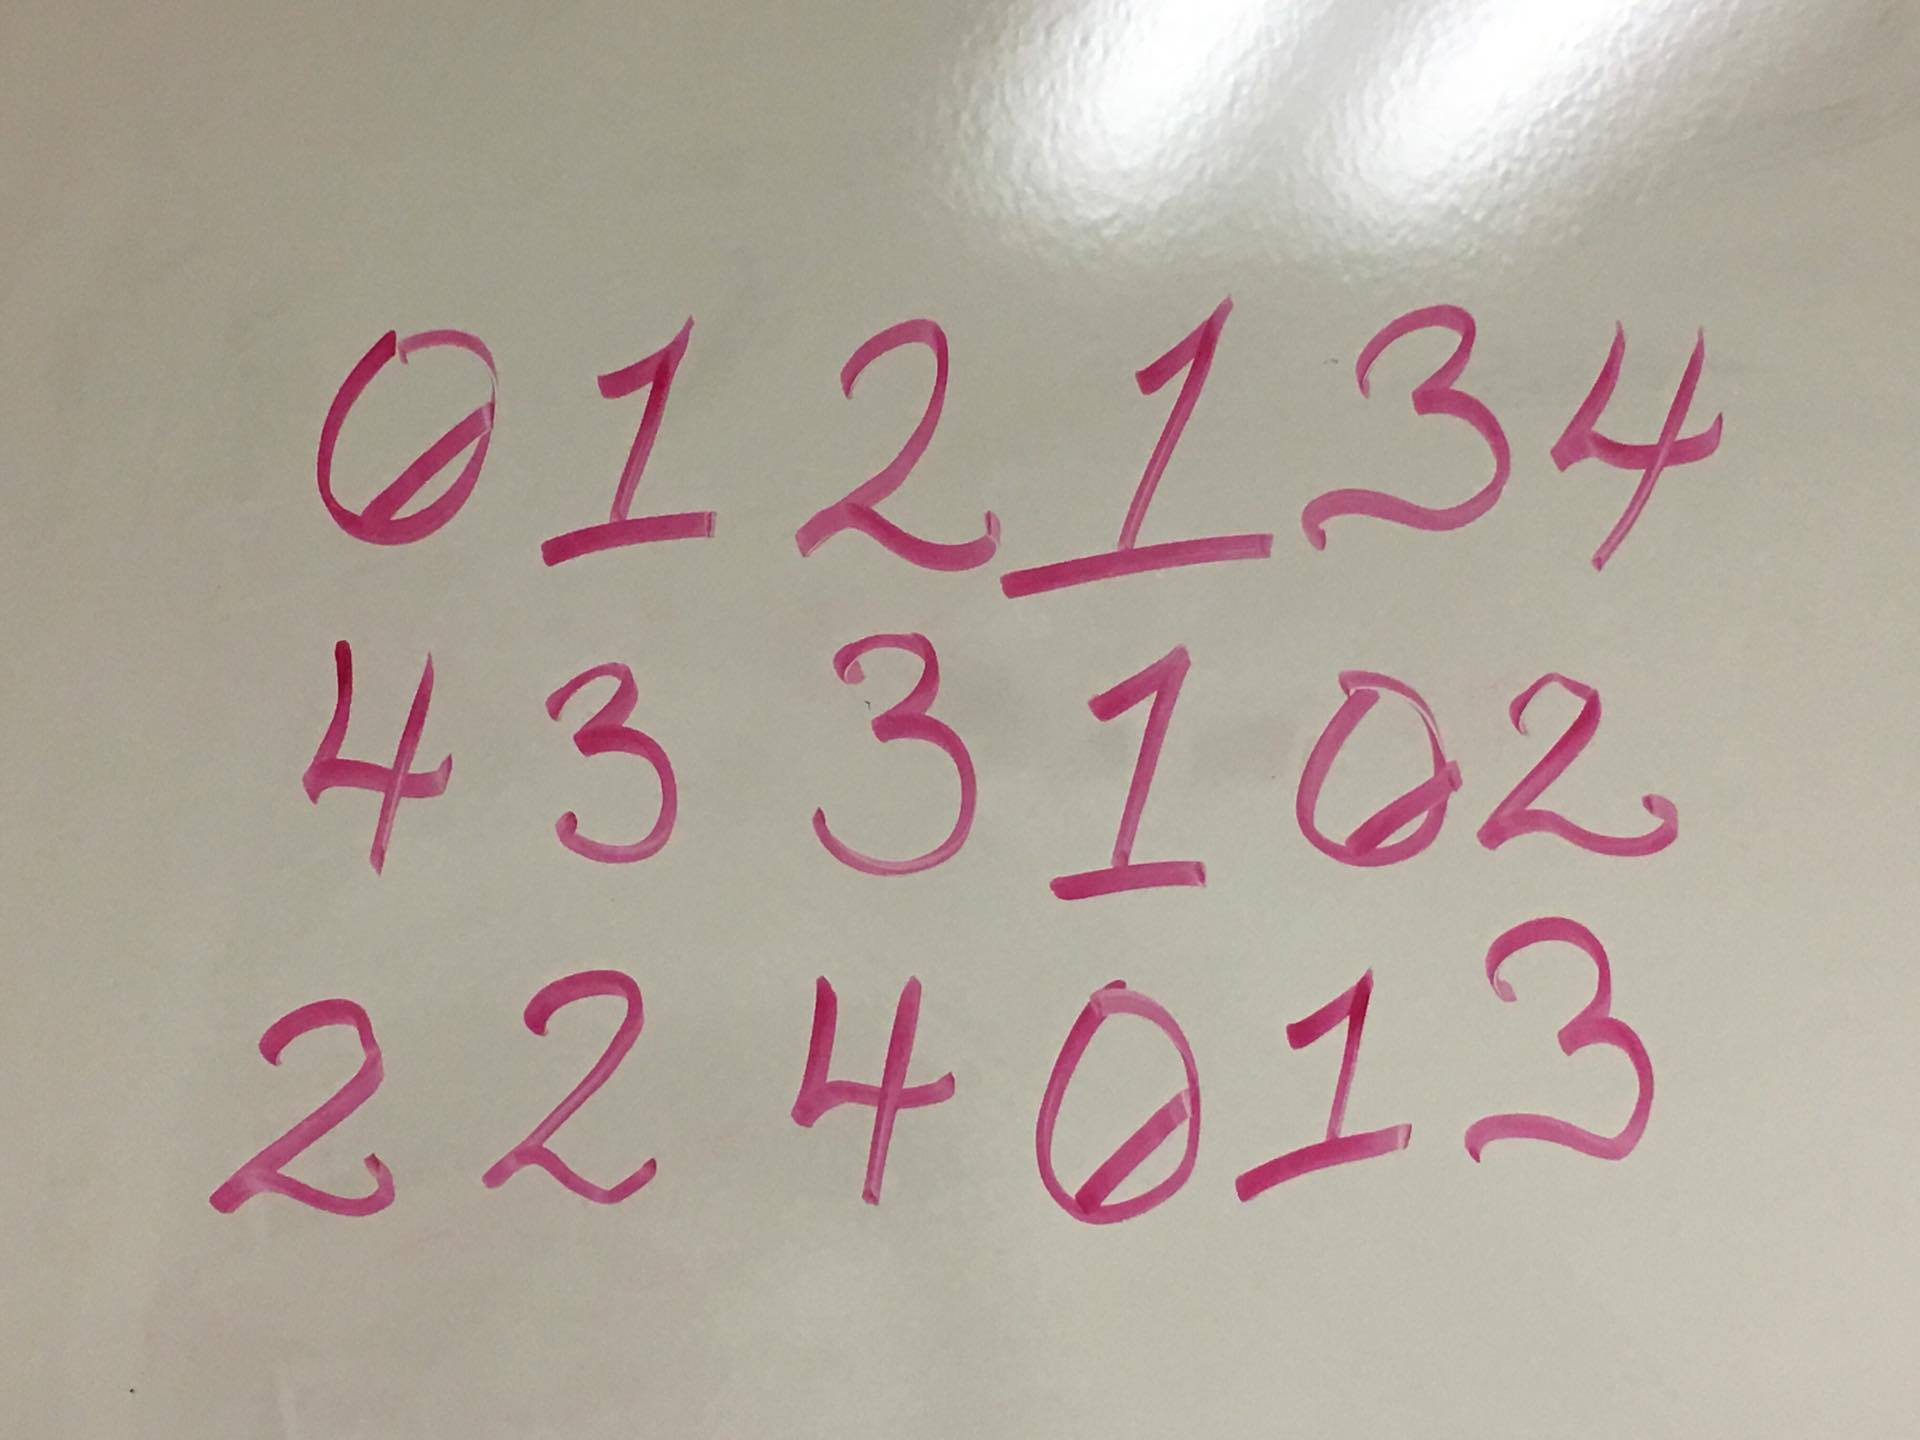 0 1 2 1 3 4
4 3 3 1 0 2
2 2 4 0 1 3